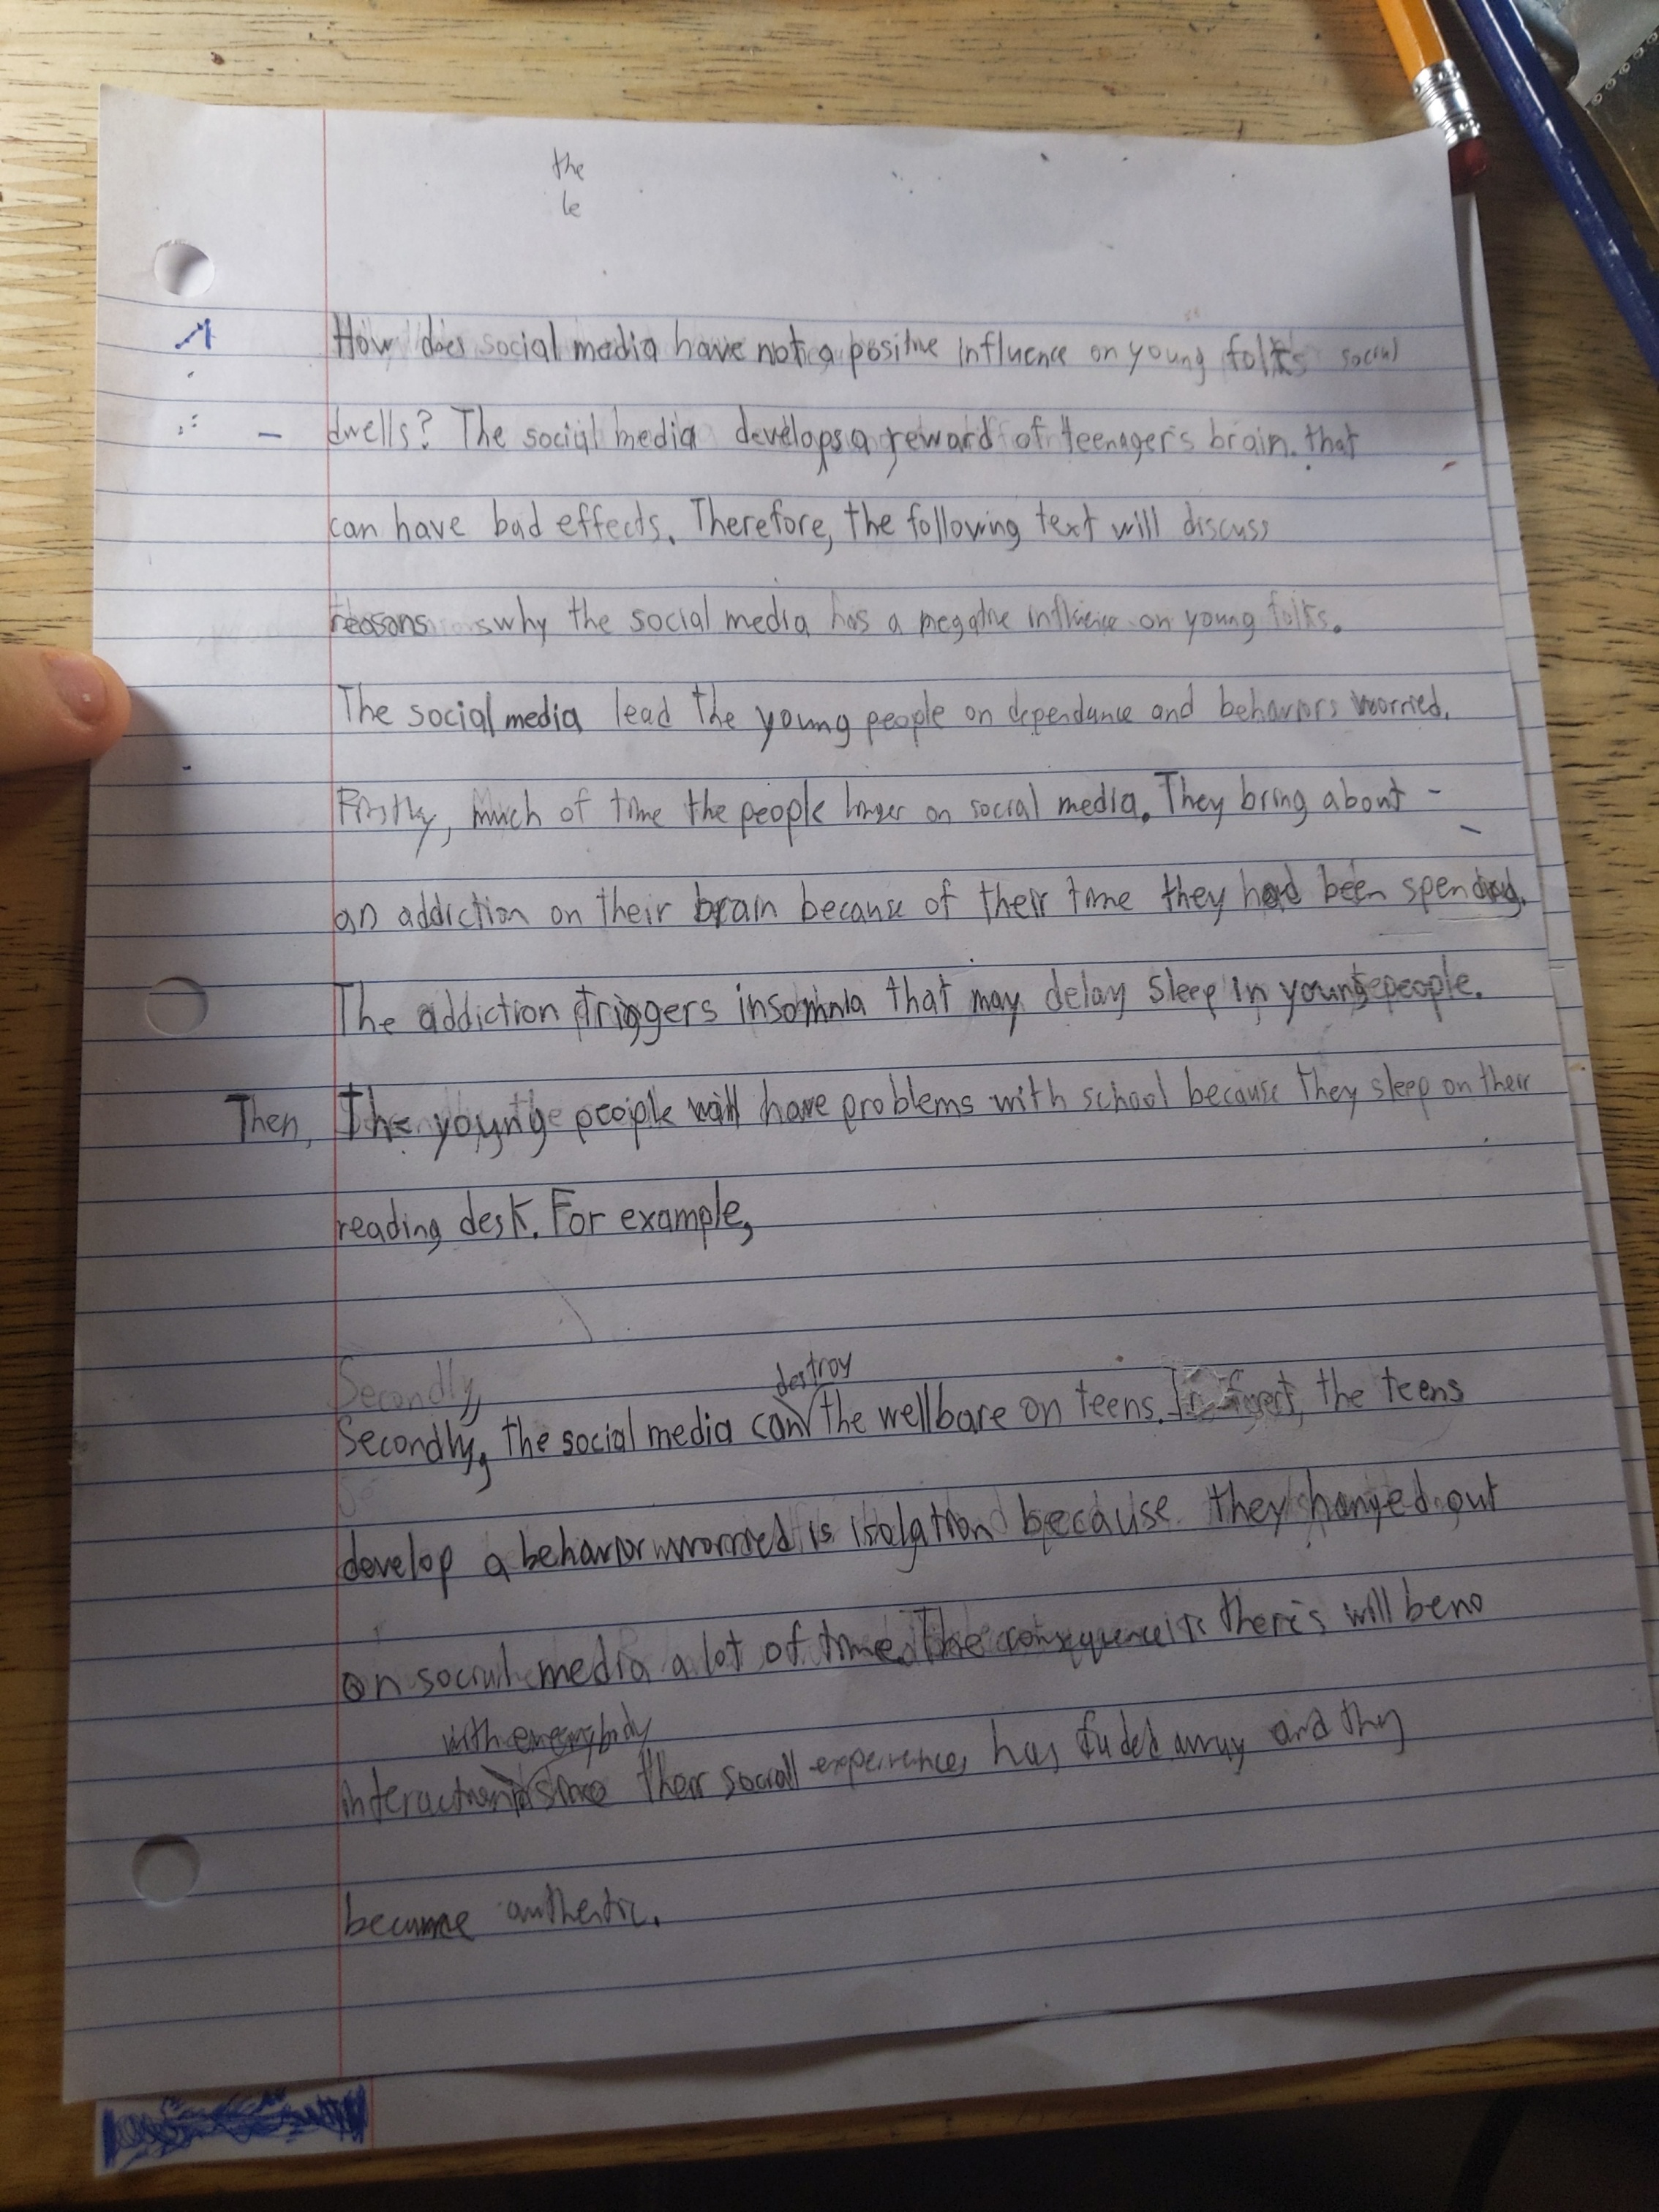 the
le
How does social media have not a positive influence on young folks social
dwells? The social media develops a reward of teenager's brain. that
can have bad effects. Therefore, the following text will discuss
reasons why the social media has a negative influence on young folks.
The social media lead the young people on dependance and behaviors worried.
Firstly, much of time the people longer on social media. They bring about
an addiction on their brain because of their time they had been spending.
The addiction triggers insomnia that may delay sleep in young people.
Then, The young people will have problems with school because they sleep on their
reading desk. For example,
Secondly,
destroy
Secondly, the social media can the wellbare on teens. the teens
develop a behavior worried is isolation because they hanged out
on social media a lot of time. The consequence is there's will be no
with everybody
interaction since their social experiences has faded away and they
become authentic.